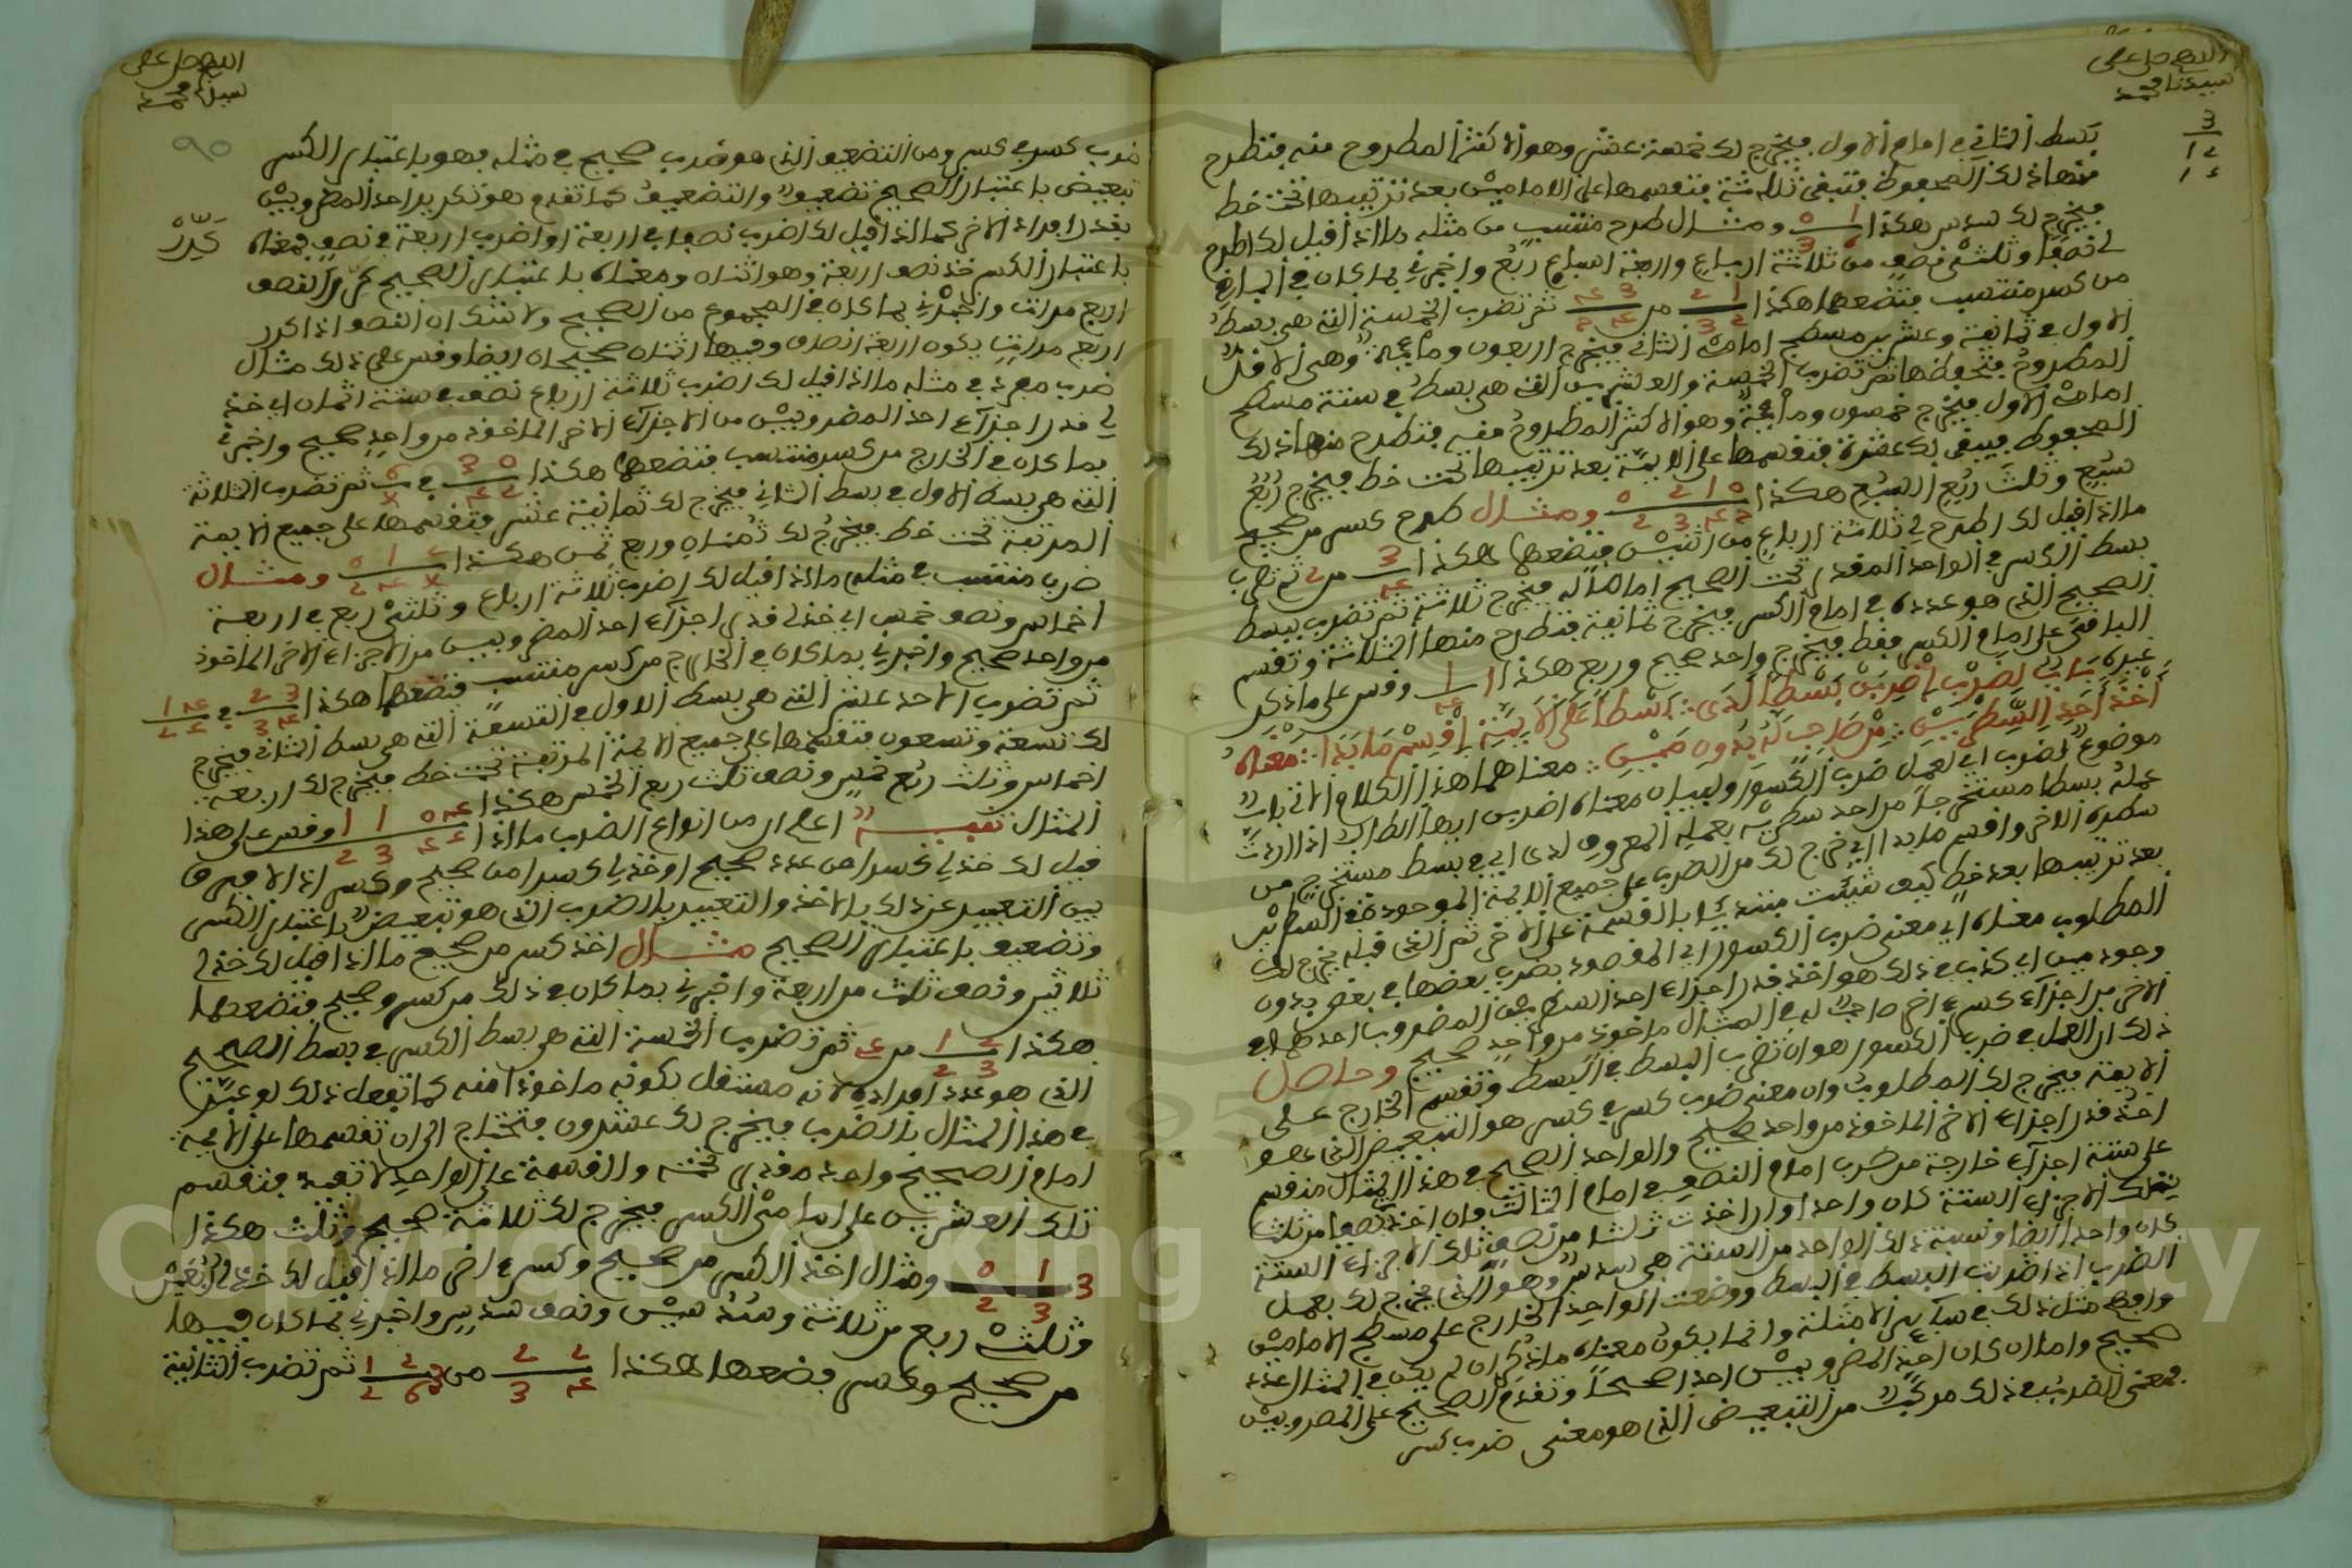 اللهم صل على
سيدنا محمد
3
12
12
بسط الثاني في امام الاول فيخرج لك خمسة عشر وهو الاكثر المطروح منه فتطرح
منها ذلك المحفوظ فتبقى ثلاثة فتقسمها على الامامين بعد ترتيبها تحت خط
فيخرج لك سدس هكذا ومثال طرح منتسب من مثله ما اذا قيل لك اطرح
لي نصفا وثلثي نصف من ثلاثة ارباع واربعة اسباع ربع واخبرني بما كان في الباقي
من كسر منتسب فتضعها هكذا من ثم تضرب الخمسة التي هي بسط
الاول في ثمانية وعشرين مسطح امامي الثاني فيخرج اربعون ومائة وهي الاقل
المطروح فتحفظها ثم تضرب الخمسة والعشرين التي هي بسط في ستة مسطح
امامي الاول فيخرج خمسون ومائة وهو الاكثر المطروح منه فتطرح منها ذلك
المحفوظ فيبقى لك عشرة فتقسمها على الايمة بعد ترتيبها تحت خط فيخرج ربع
سبع وثلث ربع السبع هكذا ومثال طرح كسر من صحيح
ما اذا قيل لك اطرح لي ثلاثة ارباع من اثنين فتضعها هكذا من 2 ثم تضرب
بسط الكسر في الواحد المقدر تحت الصحيح اماما له فيخرج ثلاثة ثم تضرب بسط
الصحيح الذي هو عدده في امام الكسر فيخرج ثمانية فتطرح منها الثلاثة وتقسم
الباقي على امام الكسر فقط فيخرج واحد صحيح وربع هكذا وقس على ما ذكر
غيره باب لضرب اضربن بسطا لدى بسط على الايمة اقسم ما بدا معناه
اخذ احد السطرين من صاحب له بدون مين معناهما هذا الكلام الاتي باب
موضوع لضرب اي لعمل ضرب الكسور ولبيان معناه اضربن ايها الطالب اذا اردت
عمله بسطا مستخرجا من احد سطريه بعمله المعروف لدى اي في بسط مستخرج من
سطره الاخر واقسم ما بدا اي خرج لك من الضرب على جميع الايمة الموجودة في السطرين
بعد ترتيبها بعد خط كيف شيت مبتديا بالقسمة على الاخر ثم الذي قبله يخرج لك
المطلوب معناه اي معنى ضرب الكسور اي المقصود بضرب بعضها في بعض بدون
وجود مين اي كذب في ذلك هو اخذ قدر اجزاء احد السطرين المضروب احدهما في
الاخر من اجزاء كسر اخر صاحب له في المثال ماخوذ من واحد صحيح وحاصل
ذلك ان العمل في ضرب الكسور هو ان تضرب البسط في البسط وتقسم الخارج على
الايمة فيخرج لك المطلوب وان معنى ضرب كسر في كسر هو التبعيض الذي هو
اخذ قدر اجزاء الاخر الماخوذ من واحد صحيح والواحد الصحيح في هذا المثال منقسم
على ستة اجزاء خارجة من ضرب امام النصف في امام الثلث فان اخذت نصفا من ثلث
تلك الاجزاء الستة كان واحدا وان اخذت ثلثا من نصف تلك الاجزاء الستة
كان واحدا ايضا ونسبة ذلك الواحد من الستة هي سدس وهو الذي يخرج لك بعمل
الضرب اذا ضربت البسط في البسط ووضعت الواحد الخارج على مسطح الامامين
وافهم مثل ذلك في ساير الامثلة وانما يكون معناه ما ذكر ان لم يكن في المثال عدد
صحيح واما ان كان احد المضروبين احدا صحيحا وتقدم الصحيح على المضروبين
فمعنى الضرب في ذلك مركب من التبعيض الذي هو معنى ضرب كسر
اللهم صل على
سيدنا محمد
90
ضرب كسر في كسر ومن التضعيف الذي هو ضرب صحيح في مثله فهو باعتبار الكسر
تبعيض باعتبار الصحيح تضعيف والتضعيف كما تقدم هو تكرير احد المضروبين
بقدر افراد الاخر كما اذا قيل لك اضرب نصفا في اربعة او اضرب اربعة في نصف فمعناه
كرر
باعتبار الكسر خذ نصف اربعة وهو اثنان ومعناه باعتبار الصحيح كرر النصف
اربع مرات واخبرني بما كان في المجموع من الصحيح ولا شك ان النصف اذا كرر
اربع مرات يكون اربعة انصاف وفيها اثنان صحيحان ايضا وقس على ذلك مثال
ضرب مفرد في مثله ما اذا قيل لك اضرب ثلاثة ارباع نصف في ستة اثمان اي خذ
لي قدر اجزاء احد المضروبين من الاجزاء الاخر الماخوذ من واحد صحيح واخبرني
بما كان في الخارج من كسر منتسب فتضعها هكذا في ثم تضرب الثلاثة
التي هي بسط الاول في بسط الثاني فيخرج لك ثمانية عشر فتقسمها على جميع الايمة
المرتبة تحت خط فيخرج لك ثمنان وربع ثمن هكذا ومثال
ضرب منتسب في مثله ما اذا قيل لك اضرب ثلاثة ارباع وثلثي ربع في اربعة
اخماس ونصف خمس اي خذ لي قدر اجزاء احد المضروبين من الاجزاء الاخر الماخوذ
من واحد صحيح واخبرني بما كان في الخارج من كسر منتسب فتضعها هكذا في
ثم تضرب الاحد عشر التي هي بسط الاول في التسعة التي هي بسط الثاني فيخرج
لك تسعة وتسعون فتقسمها على جميع الايمة المرتبة تحت خط فيخرج لك اربعة
اخماس وثلث ربع خمس ونصف ثلث ربع الخمس هكذا وقس على هذا
المثال تنبيه اعلم ان من انواع الضرب ما اذا
قيل لك خذ لي كسرا من عدد صحيح او خذ لي كسرا من صحيح وكسر اذ لا فرق
بين التعبير عن ذلك بالاخذ والتعبير بالضرب الذي هو تبعيض باعتبار الكسر
وتضعيف باعتبار الصحيح مثال اخذ كسر من صحيح ما اذا قيل لك خذ لي
ثلثين ونصف ثلث من اربعة واخبرني بما كان في ذلك من كسر وصحيح فتضعها
هكذا من ثم تضرب الخمسة التي هي بسط الكسر في بسط الصحيح
الذي هو عدد افراده لانه مستقل بكونه ماخوذا منه كما تفعل ذلك لو عبر
في هذا المثال بالضرب فيخرج لك عشرون فتحتاج الى ان تقسمها على الايمة
امام الصحيح واحد مقدر تحته والقسمة على الواحد لا تفيد فتقسم
تلك العشرين على امامي الكسر فيخرج لك ثلاثة صحيح وثلث هكذا
ومثال اخذ الكسر من صحيح وكسر اخر ما اذا قيل لك خذ لي ربعين
وثلثي ربع من ثلاثة وسدسين ونصف سدس واخبرني بما كان فيها
من صحيح وكسر فضعها هكذا من ثم تضرب الثانية